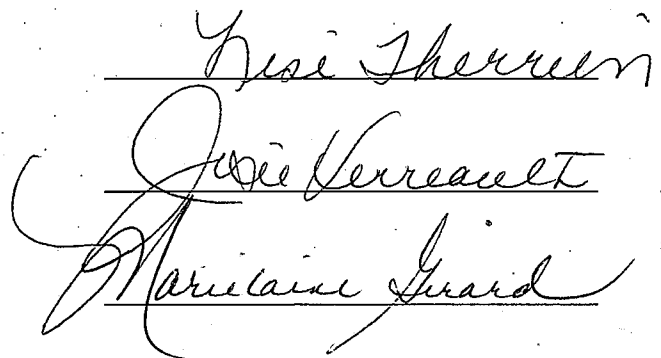 Lise Therrien
Josée Verreault
Marielaine Girard